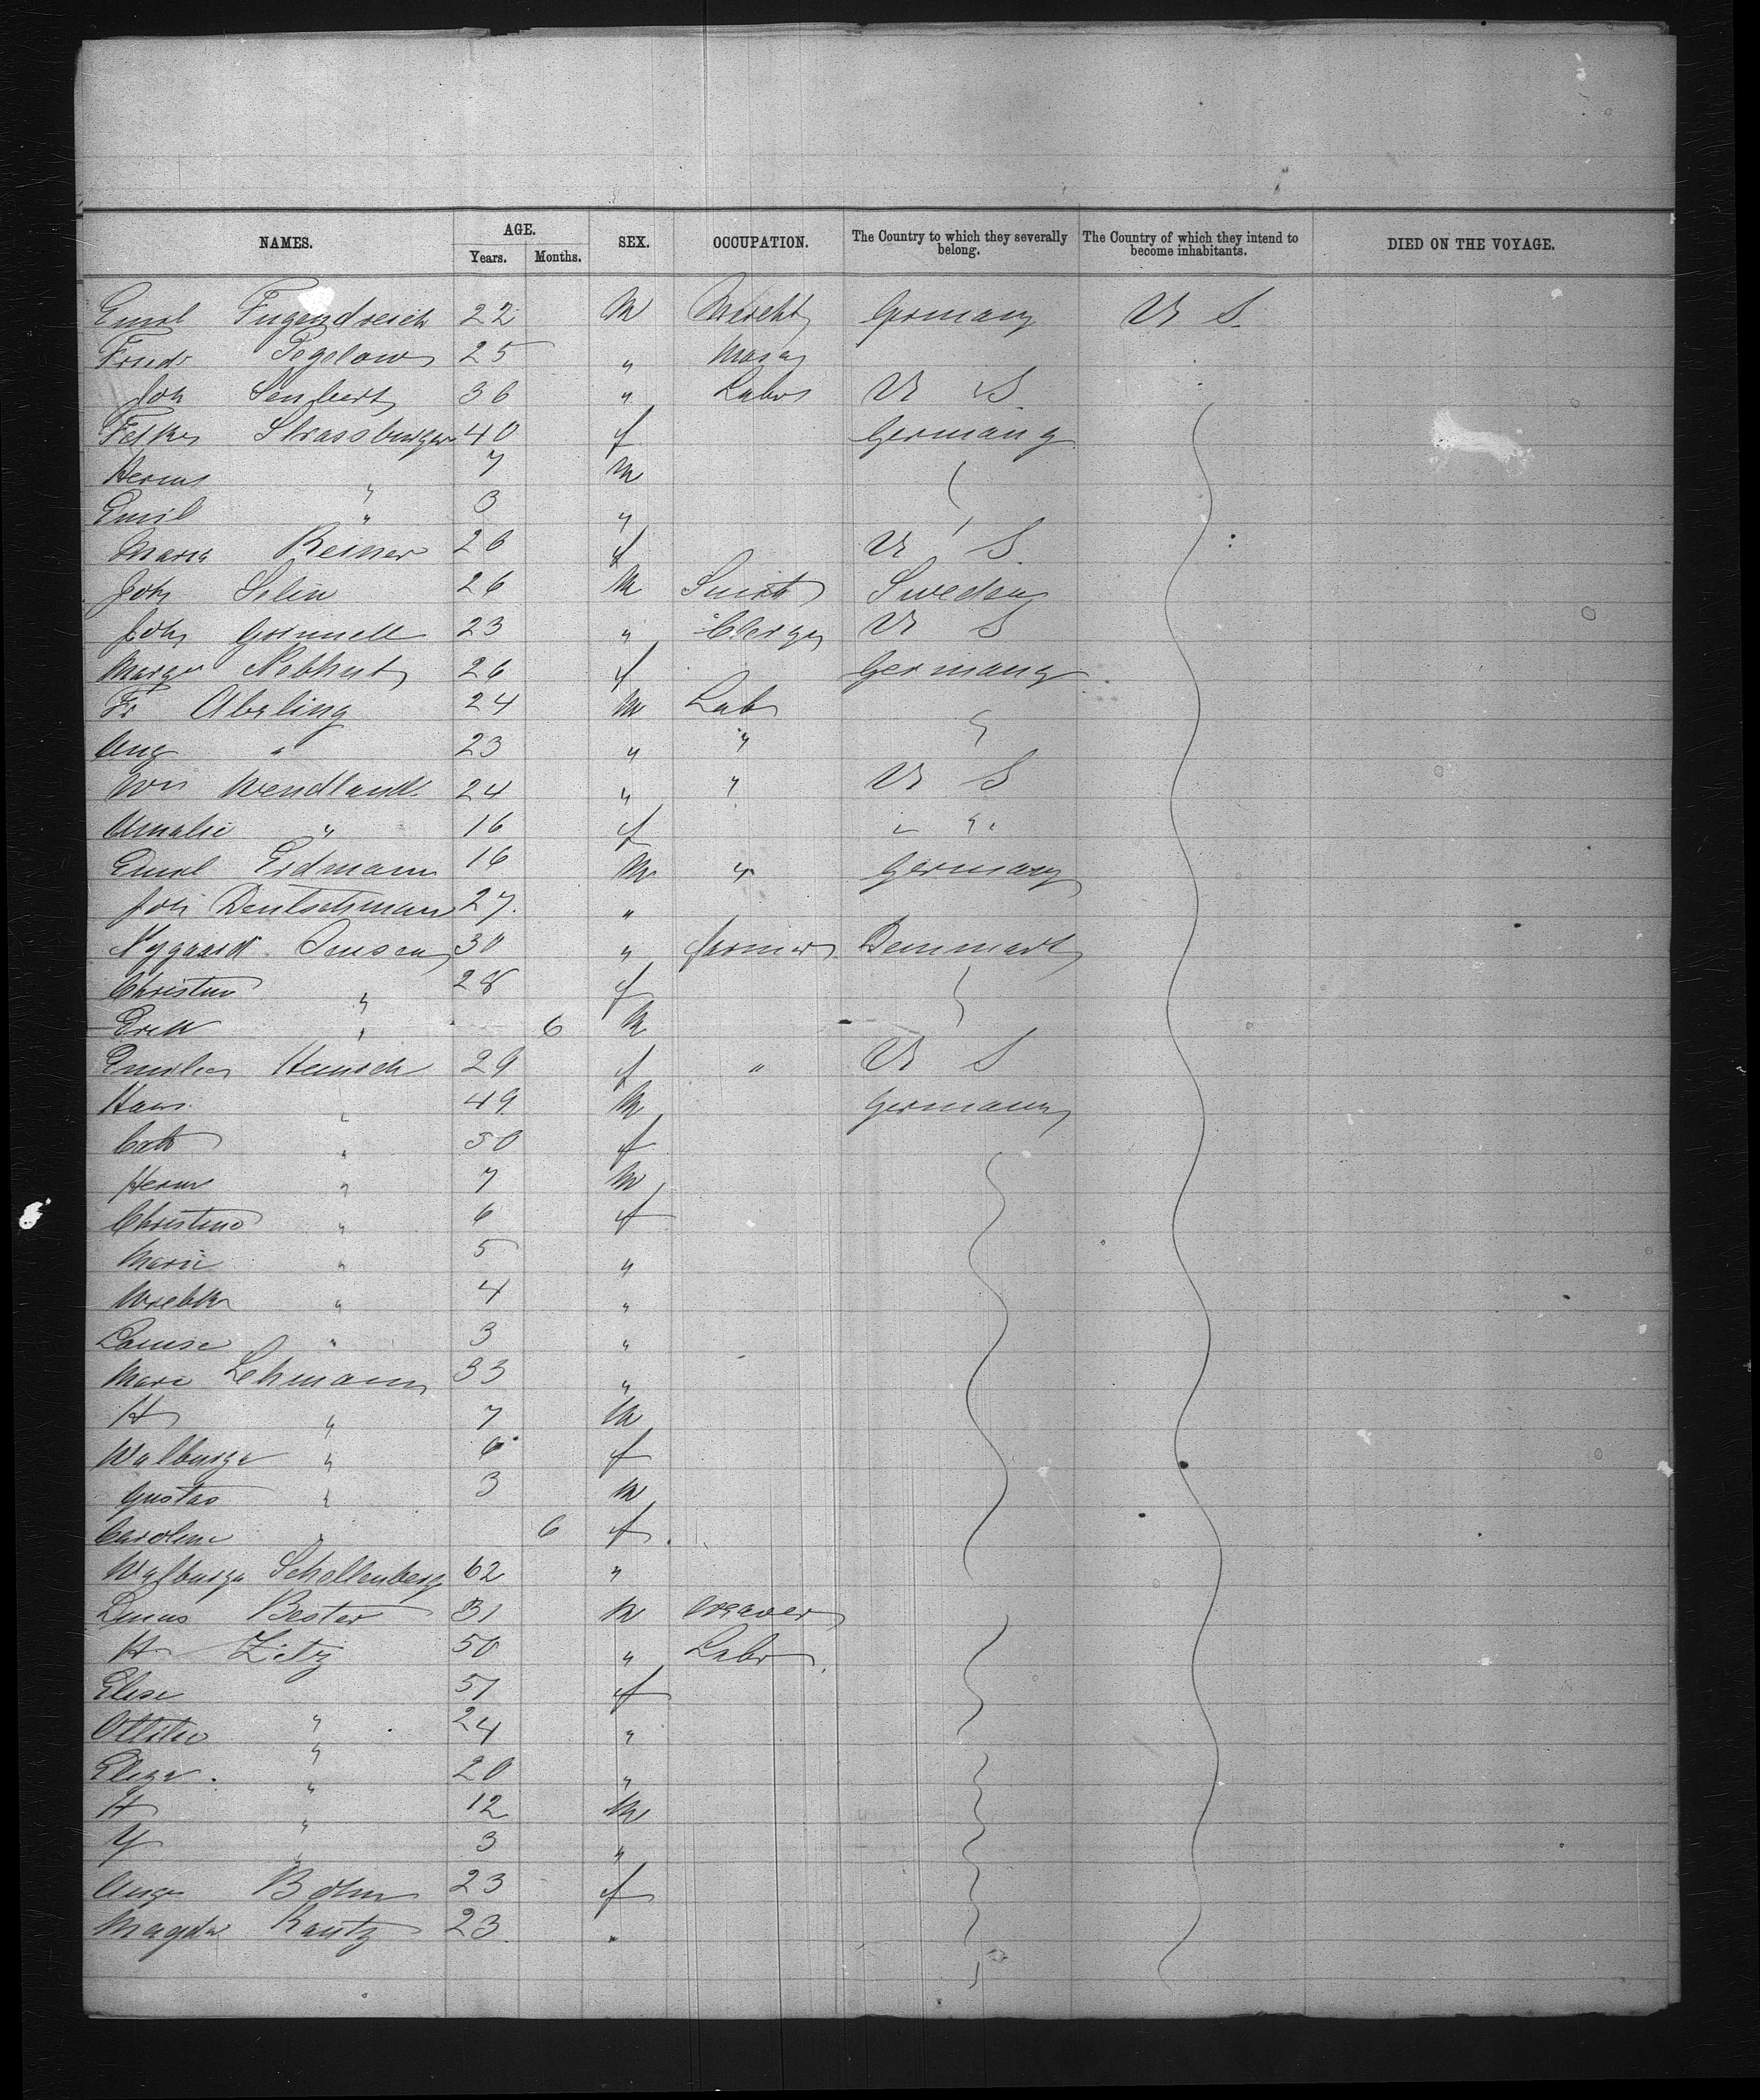 NAMES. AGE. Years. Months. SEX. OCCUPATION. The Country to which they severally belong. The Country of which they intend to become inhabitants. DIED ON THE VOYAGE.
Emil Tugendreich 22 M Mercht Germany U S.
Friedr Tegelow 25 " Mason
Joh Seubert 36 " Labor U S.
Strassburger 40 f Germany
Herm " 7 M
Emil " 3 "
Maria Reiner 26 f U S
Joh Selin 26 M Smith Sweden
Joh Grinnell 23 " Clergy U S
Marga Nebhut 26 f Germany
Fr Abeling 24 M Lab
Aug " 23 " "
Wm Wendlandt 24 " " U S
Amalie " 16 f " "
Emil Erdmann 16 M " Germany
Joh Deutschmann 27. "
Nygaard Jensen 30 " farmer Denmark
Christine " 28 f
Erik " 6 M
Emilie Heinsch 29 f " U S
Hans " 49 M Germany
Cath " 50 f
Herm " 7 M
Christine " 6 f
Marie " 5 "
Wiebke " 4 "
Louise " 3 "
Marie Lehmann 33 "
H " 7 M
Walburga " 6 f
Gustav " 3 M
Caroline " 6 f
Walburga Schellenberg 62 "
Bester 31 M Weaver
H Zitz 50 " Labor
Elise " 51 f
Ottilie " 24 "
Eliza " 20 "
H " 12 M
Y " 3 "
Auge Bohm 23 f
Magda Kautz 23 "